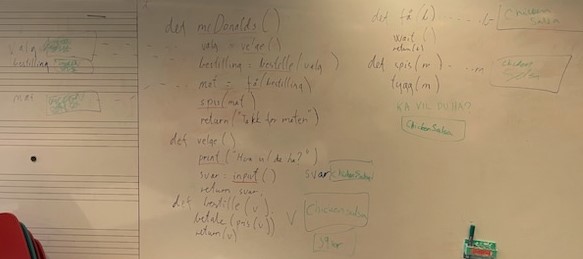 valg
bestilling
mat
def mcDonalds()
valg = velge()
bestilling = bestille(valg)
mat = få(bestilling)
spis(mat)
return("Takk for maten")
def velge()
print("Hva vil du ha?")
svar = input()
return svar
def bestille(v)
betale(pris(v))
return(v)
svar Chicken Salsa
V Chicken salsa
def få(b) b Chicken Salsa
wait()
return(b)
def spis(m) m Chicken Salsa
tygg(m)
HVA VIL DU HA?
Chicken Salsa